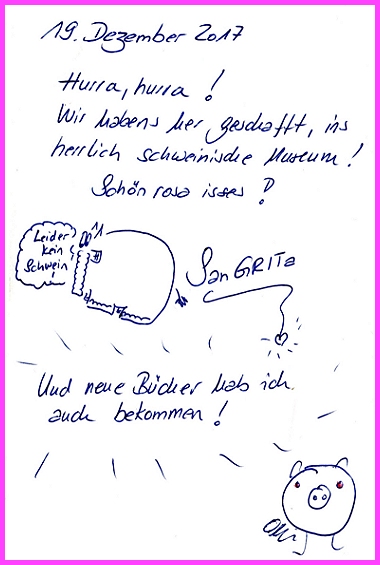 19. Dezember 2017
Hurra, hurra!
Wir habens her geschafft, ins
herrlich schweinische Museum!
Schön rosa isses!
Leider
kein
Schwein
SanGRITa
Und neue Bücher hab ich
auch bekommen!